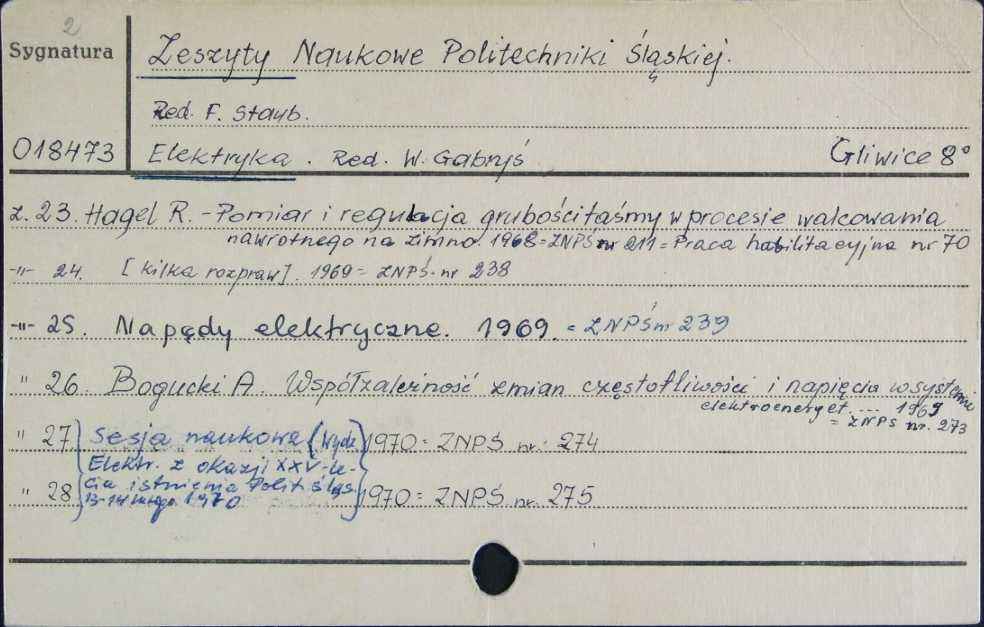 2
Sygnatura
Zeszyty Naukowe Politechniki Śląskiej.
Red. F. Staub.
018473
Elektryka. Red. W. Gabryś
Gliwice 8°
z. 23. Hagel R. - Pomiar i regulacja grubości taśmy w procesie walcowania
nawrotnego na zimno. 1968 = ZNPŚ nr 211 = Praca habilitacyjna nr 70
-"- 24. [kilka rozpraw]. 1969 = ZNPŚ. nr 238
-"- 25. Napędy elektryczne. 1969. = ZNPŚ nr 239
" 26. Bogucki A. Współzależność zmian częstotliwości i napięcia w systemie
elektroenerget. ... 1969
= ZNPŚ nr. 273
" 27 Sesja naukowa (Wydz 1970 = ZNPŚ nr. 274
Elektr. z okazji XXV-le-
cia istnienia Polit Śląs.
" 28 13-14 lutego 1970 1970 = ZNPŚ nr. 275